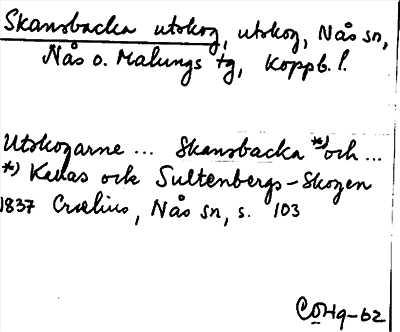 Skansbacka utskog, utskog, Nås sn,
Nås o. Malungs tg, Koppb. l.
Utskogarne ... Skansbacka *) och ...
*) Kallas ock Sultenbergs-Skogen
1837 Crælius, Nås sn, s. 103
COHg-62